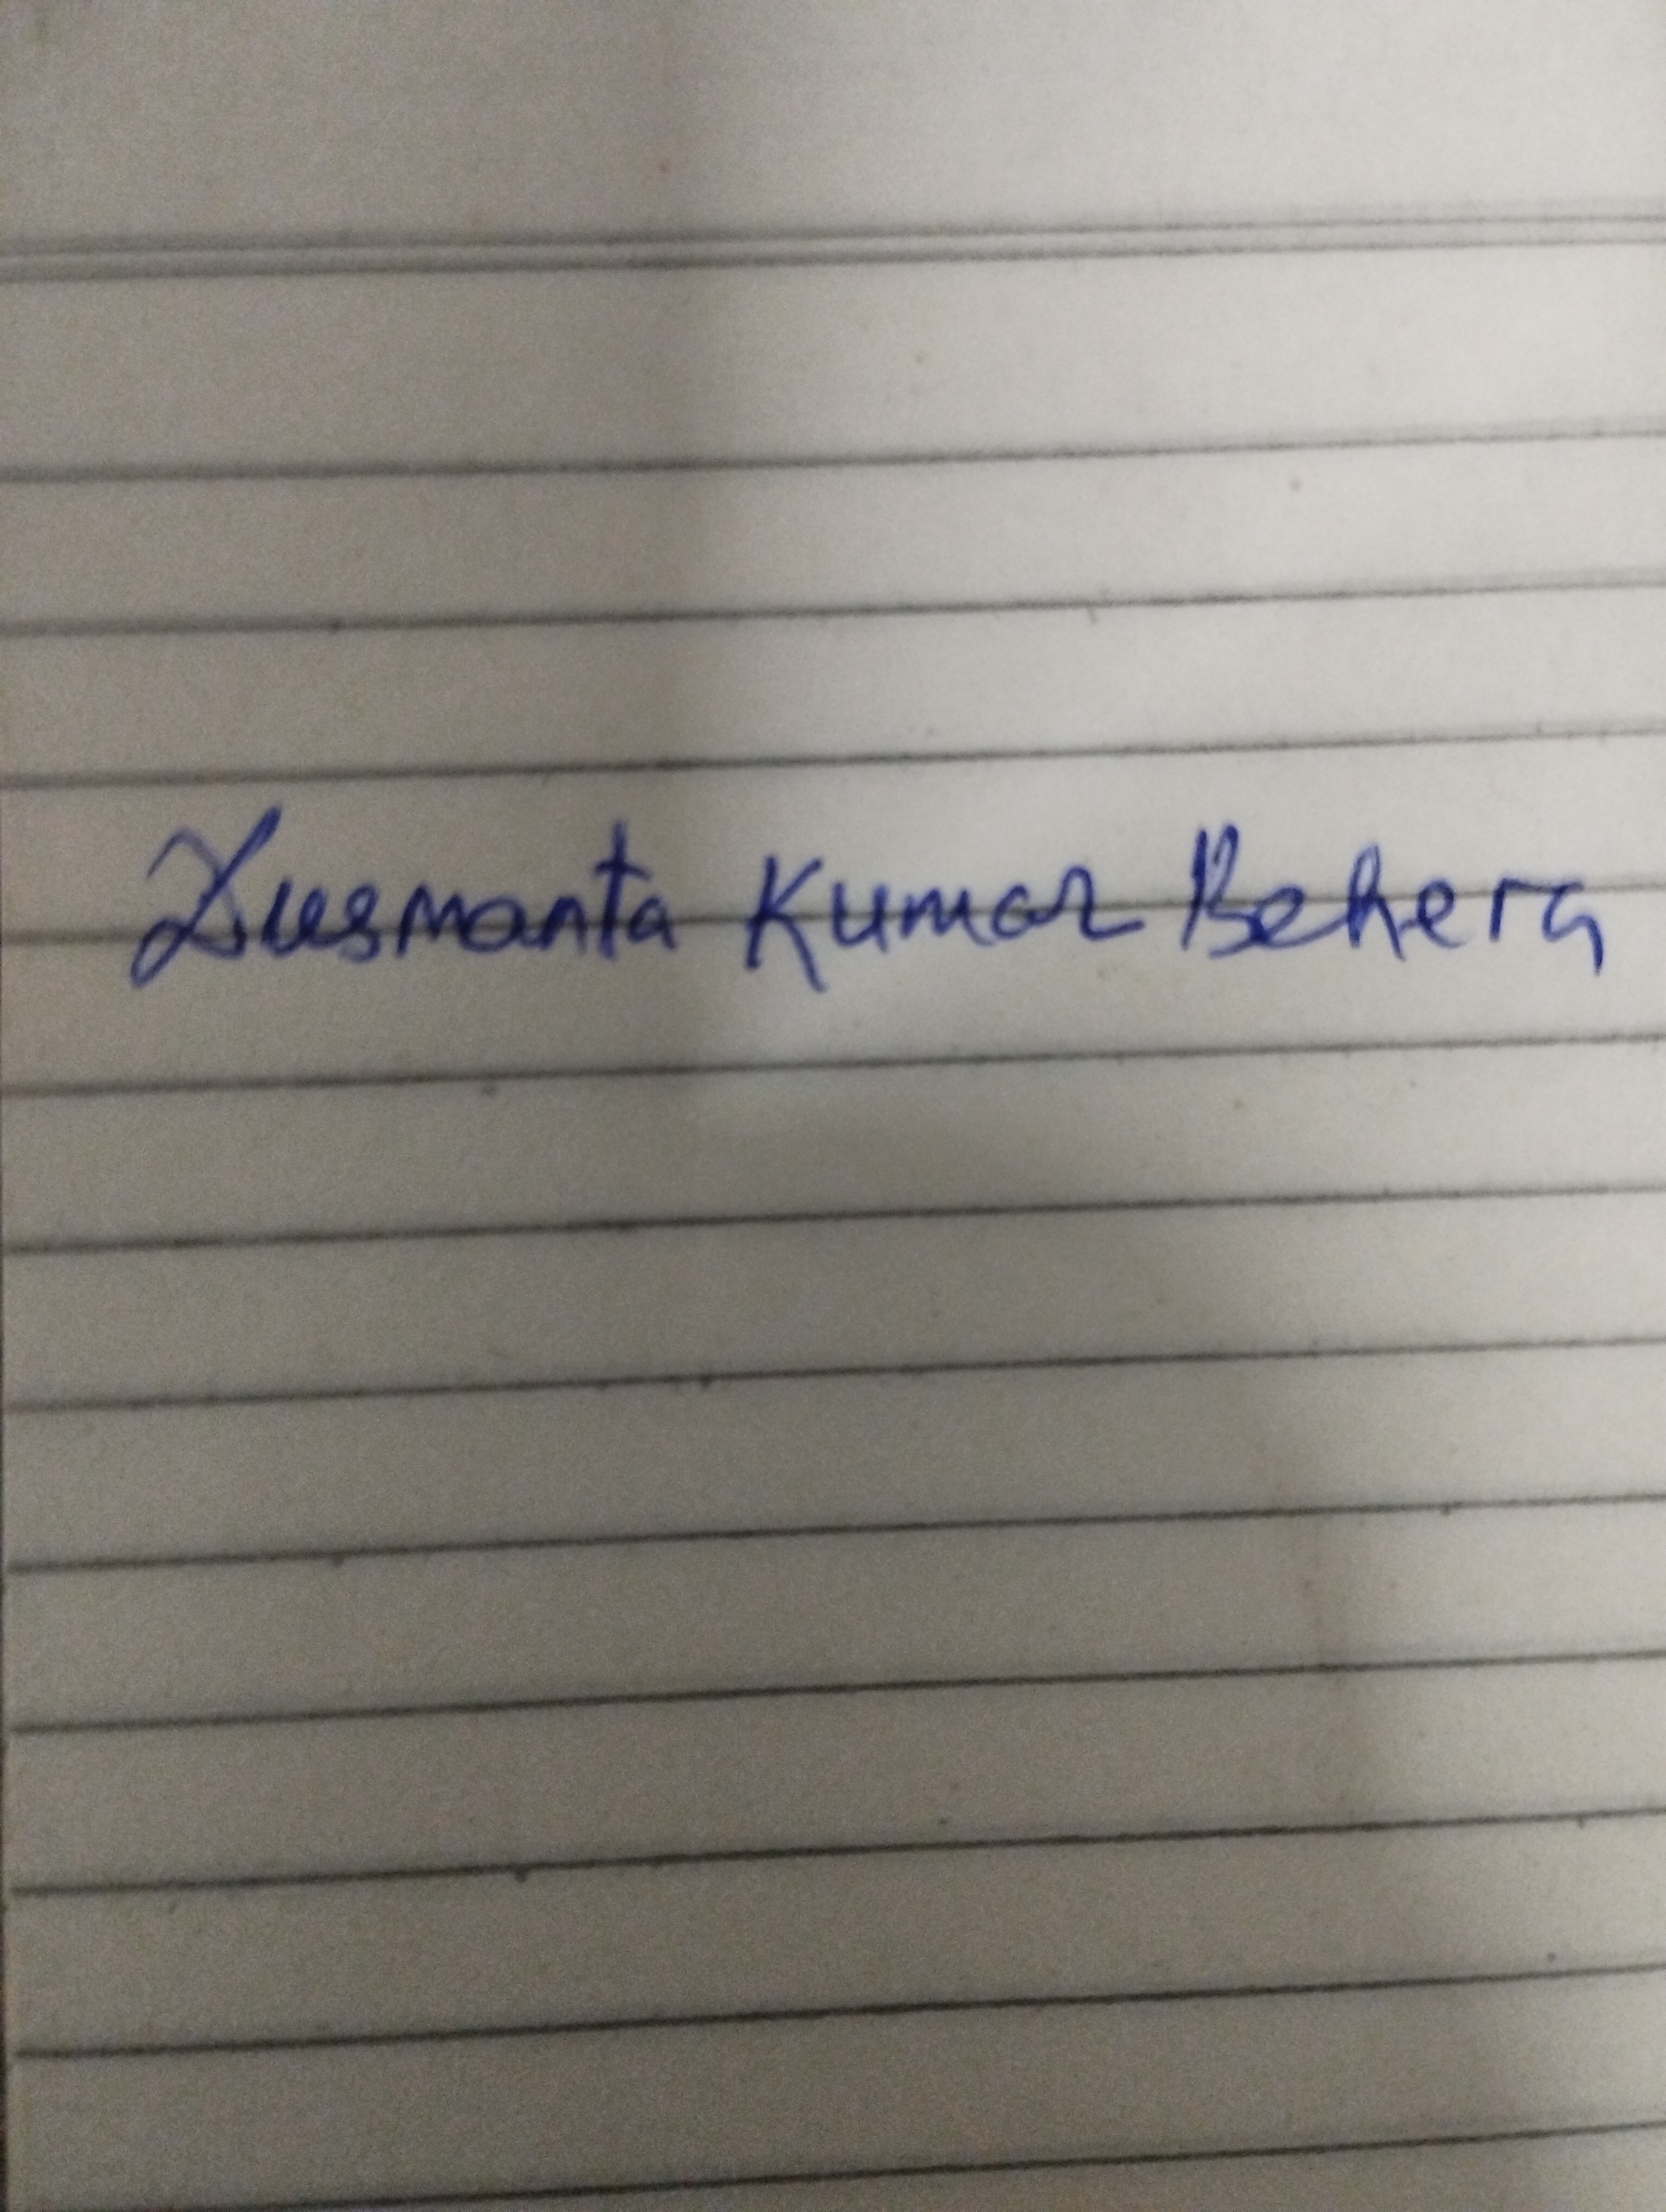 Dusmanta Kumar Behera